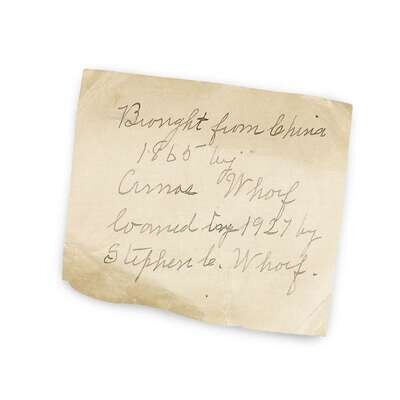 Brought from China
1865 by
Amos Whorf
loaned 1927 by
Stephen C. Whorf.